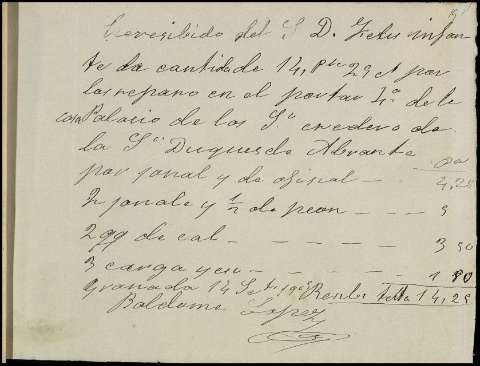 He resibido del S D. Felis infan
te la cantidade 14, Pts 29 ct por
los reparo en el portar 4º de la
casa Palacio de los Sr eredero de
la Sra Duquesa de Abrante
por jonal y de ofisial — 4,25
2 jonale y ½ de peon - - - 5
2 qq de cal - - - - 3 50
3 carga yeso - - - - 1 80
Granada 14 Resibi Totta 14,25
Baldome Lopez